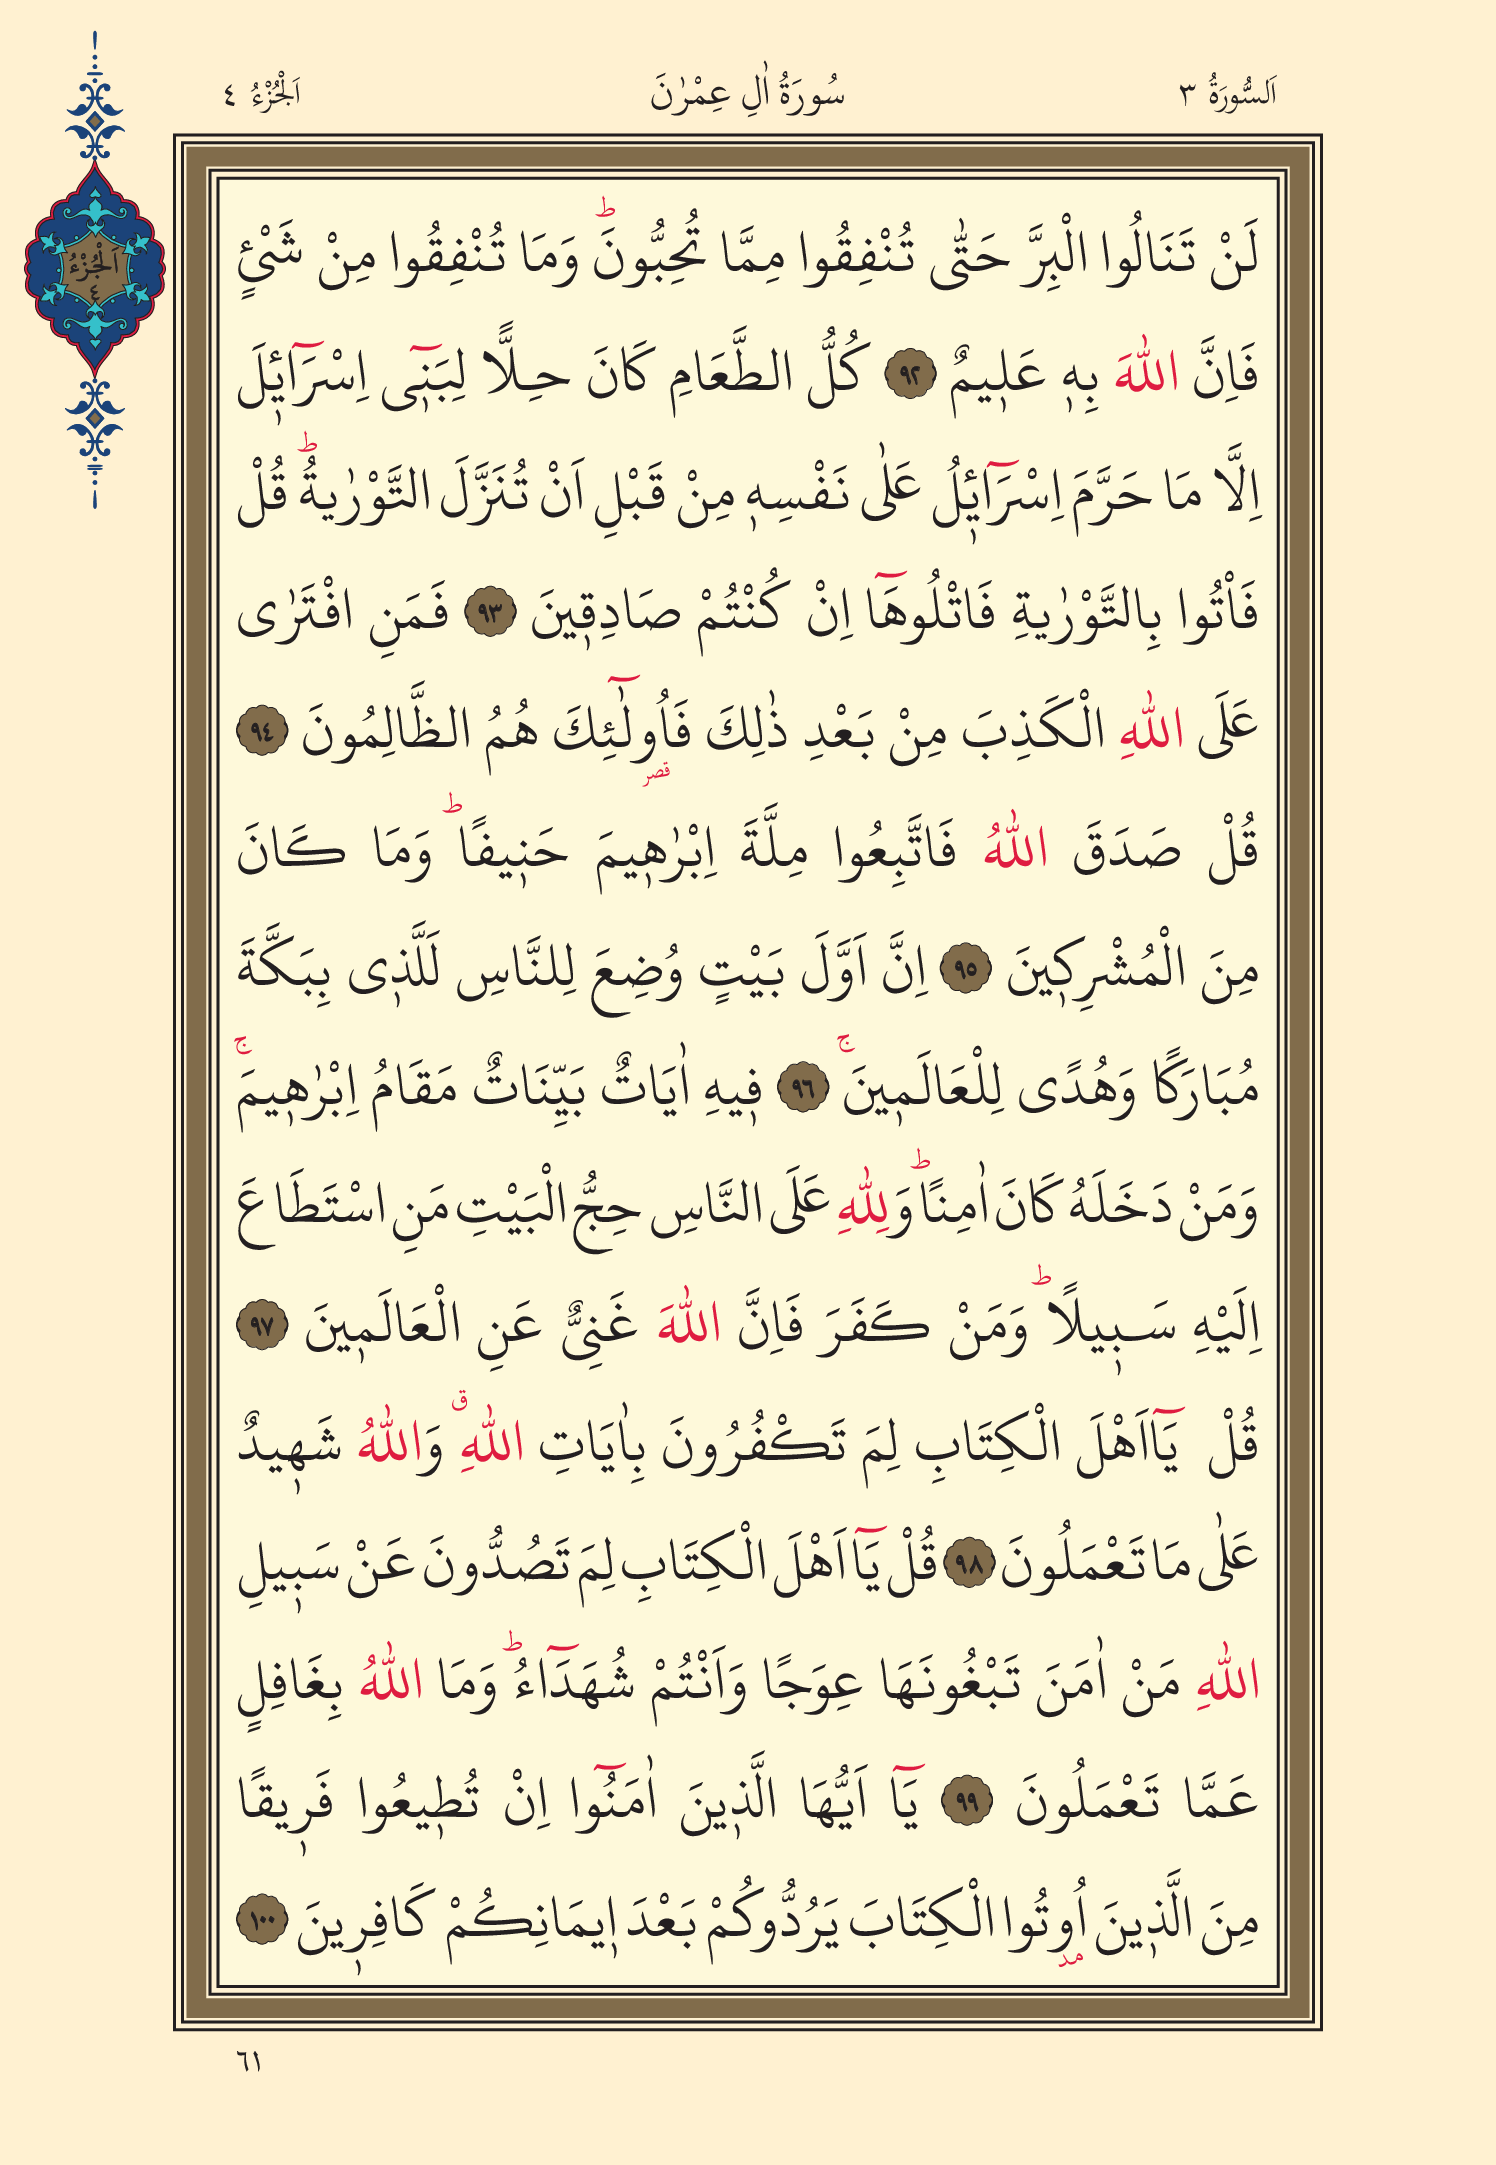 اَلسُّورَةُ ٣ سُورَةُ اٰلِ عِمْرٰنَ اَلْجُزْءُ ٤
اَلْجُزْءُ
٤
لَنْ تَنَالُوا الْبِرَّ حَتّٰى تُنْفِقُوا مِمَّا تُحِبُّونَۜ وَمَا تُنْفِقُوا مِنْ شَیْئٍ
فَاِنَّ اللّٰهَ بِهٖ عَلٖيمٌ ﴿٩٢﴾ كُلُّ الطَّعَامِ كَانَ حِلًّا لِبَنٖٓى اِسْرَٓائٖلَ
اِلَّا مَا حَرَّمَ اِسْرَٓائٖلُ عَلٰى نَفْسِهٖ مِنْ قَبْلِ اَنْ تُنَزَّلَ التَّوْرٰيةُۜ قُلْ
فَاْتُوا بِالتَّوْرٰيةِ فَاتْلُوهَٓا اِنْ كُنْتُمْ صَادِقٖينَ ﴿٩٣﴾ فَمَنِ افْتَرٰى
عَلَى اللّٰهِ الْكَذِبَ مِنْ بَعْدِ ذٰلِكَ فَاُولٰٓئِكَ هُمُ الظَّالِمُونَ ﴿٩٤﴾
قصر
قُلْ صَدَقَ اللّٰهُ فَاتَّبِعُوا مِلَّةَ اِبْرٰهٖيمَ حَنٖيفًاۜ وَمَا كَانَ
مِنَ الْمُشْرِكٖينَ ﴿٩٥﴾ اِنَّ اَوَّلَ بَيْتٍ وُضِعَ لِلنَّاسِ لَلَّذٖى بِبَكَّةَ
مُبَارَكًا وَهُدًى لِلْعَالَمٖينَۚ ﴿٩٦﴾ فٖيهِ اٰيَاتٌ بَيِّنَاتٌ مَقَامُ اِبْرٰهٖيمَۚ
وَمَنْ دَخَلَهُ كَانَ اٰمِنًاۜ وَلِلّٰهِ عَلَى النَّاسِ حِجُّ الْبَيْتِ مَنِ اسْتَطَاعَ
اِلَيْهِ سَبٖيلًاۜ وَمَنْ كَفَرَ فَاِنَّ اللّٰهَ غَنِىٌّ عَنِ الْعَالَمٖينَ ﴿٩٧﴾
قُلْ يَٓا اَهْلَ الْكِتَابِ لِمَ تَكْفُرُونَ بِاٰيَاتِ اللّٰهِۗ وَاللّٰهُ شَهٖيدٌ
عَلٰى مَا تَعْمَلُونَ ﴿٩٨﴾ قُلْ يَٓا اَهْلَ الْكِتَابِ لِمَ تَصُدُّونَ عَنْ سَبٖيلِ
اللّٰهِ مَنْ اٰمَنَ تَبْغُونَهَا عِوَجًا وَاَنْتُمْ شُهَدَٓاءُۜ وَمَا اللّٰهُ بِغَافِلٍ
عَمَّا تَعْمَلُونَ ﴿٩٩﴾ يَٓا اَيُّهَا الَّذٖينَ اٰمَنُٓوا اِنْ تُطٖيعُوا فَرٖيقًا
مِنَ الَّذٖينَ اُوتُوا الْكِتَابَ يَرُدُّوكُمْ بَعْدَ اٖيمَانِكُمْ كَافِرٖينَ ﴿١٠٠﴾
مد
٦١